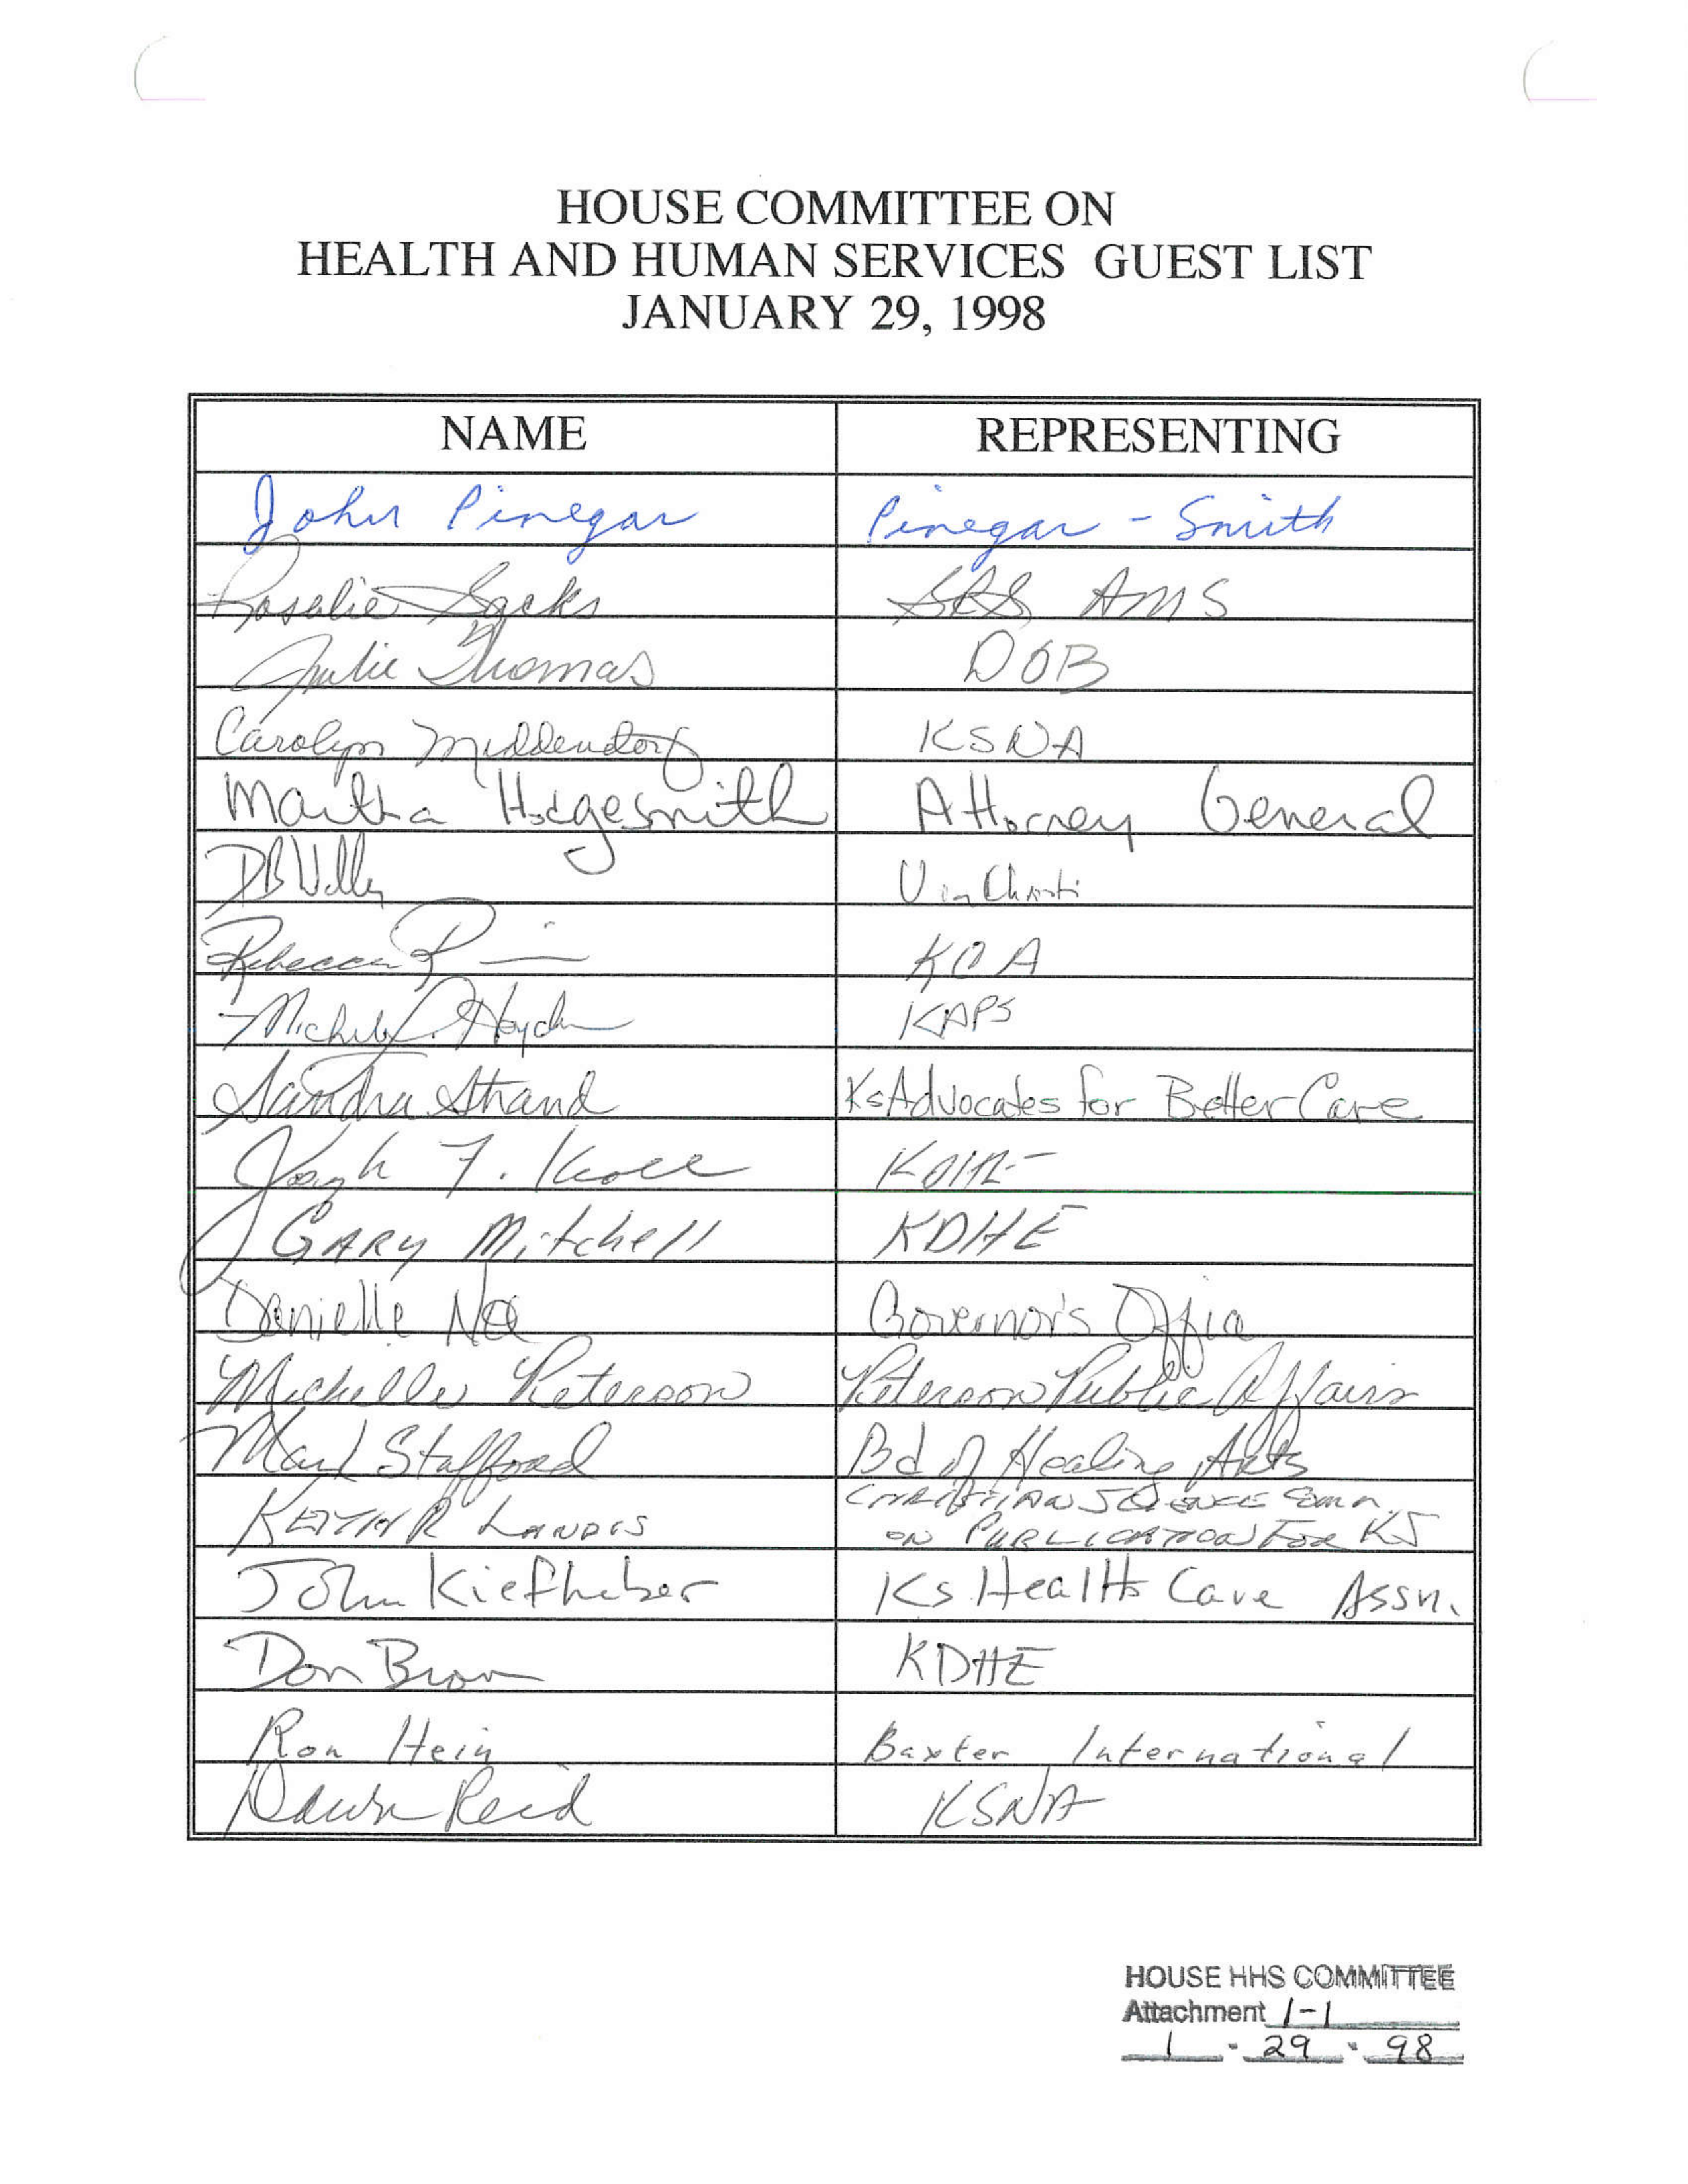 HOUSE COMMITTEE ON
HEALTH AND HUMAN SERVICES GUEST LIST
JANUARY 29, 1998
NAME REPRESENTING
John Pinegar Pinegar - Smith
Rosalie Sacks SRS AMS
Julie Thomas DOB
Carolyn Middendorf KSNA
Martha Hodgesmith Attorney General
Via Christi
Rebecca KOA
KAPS
Sandra Strand Ks Advocates for Better Care
Joseph F. Kroll KDHE
GARY Mitchell KDHE
Danielle Noe Governor's Office
Michelle Peterson Peterson Public Affairs
Mark Stafford Bd of Healing Arts
KEITH R LANDIS CHRISTIAN SCIENCE COMM.
ON PUBLICATION FOR KS
John Kiefhaber Ks Health Care Assn.
Don Brown KDHE
Ron Hein Baxter International
Dawn Reid KSNA
HOUSE HHS COMMITTEE
Attachment 1-1
1 - 29 - 98